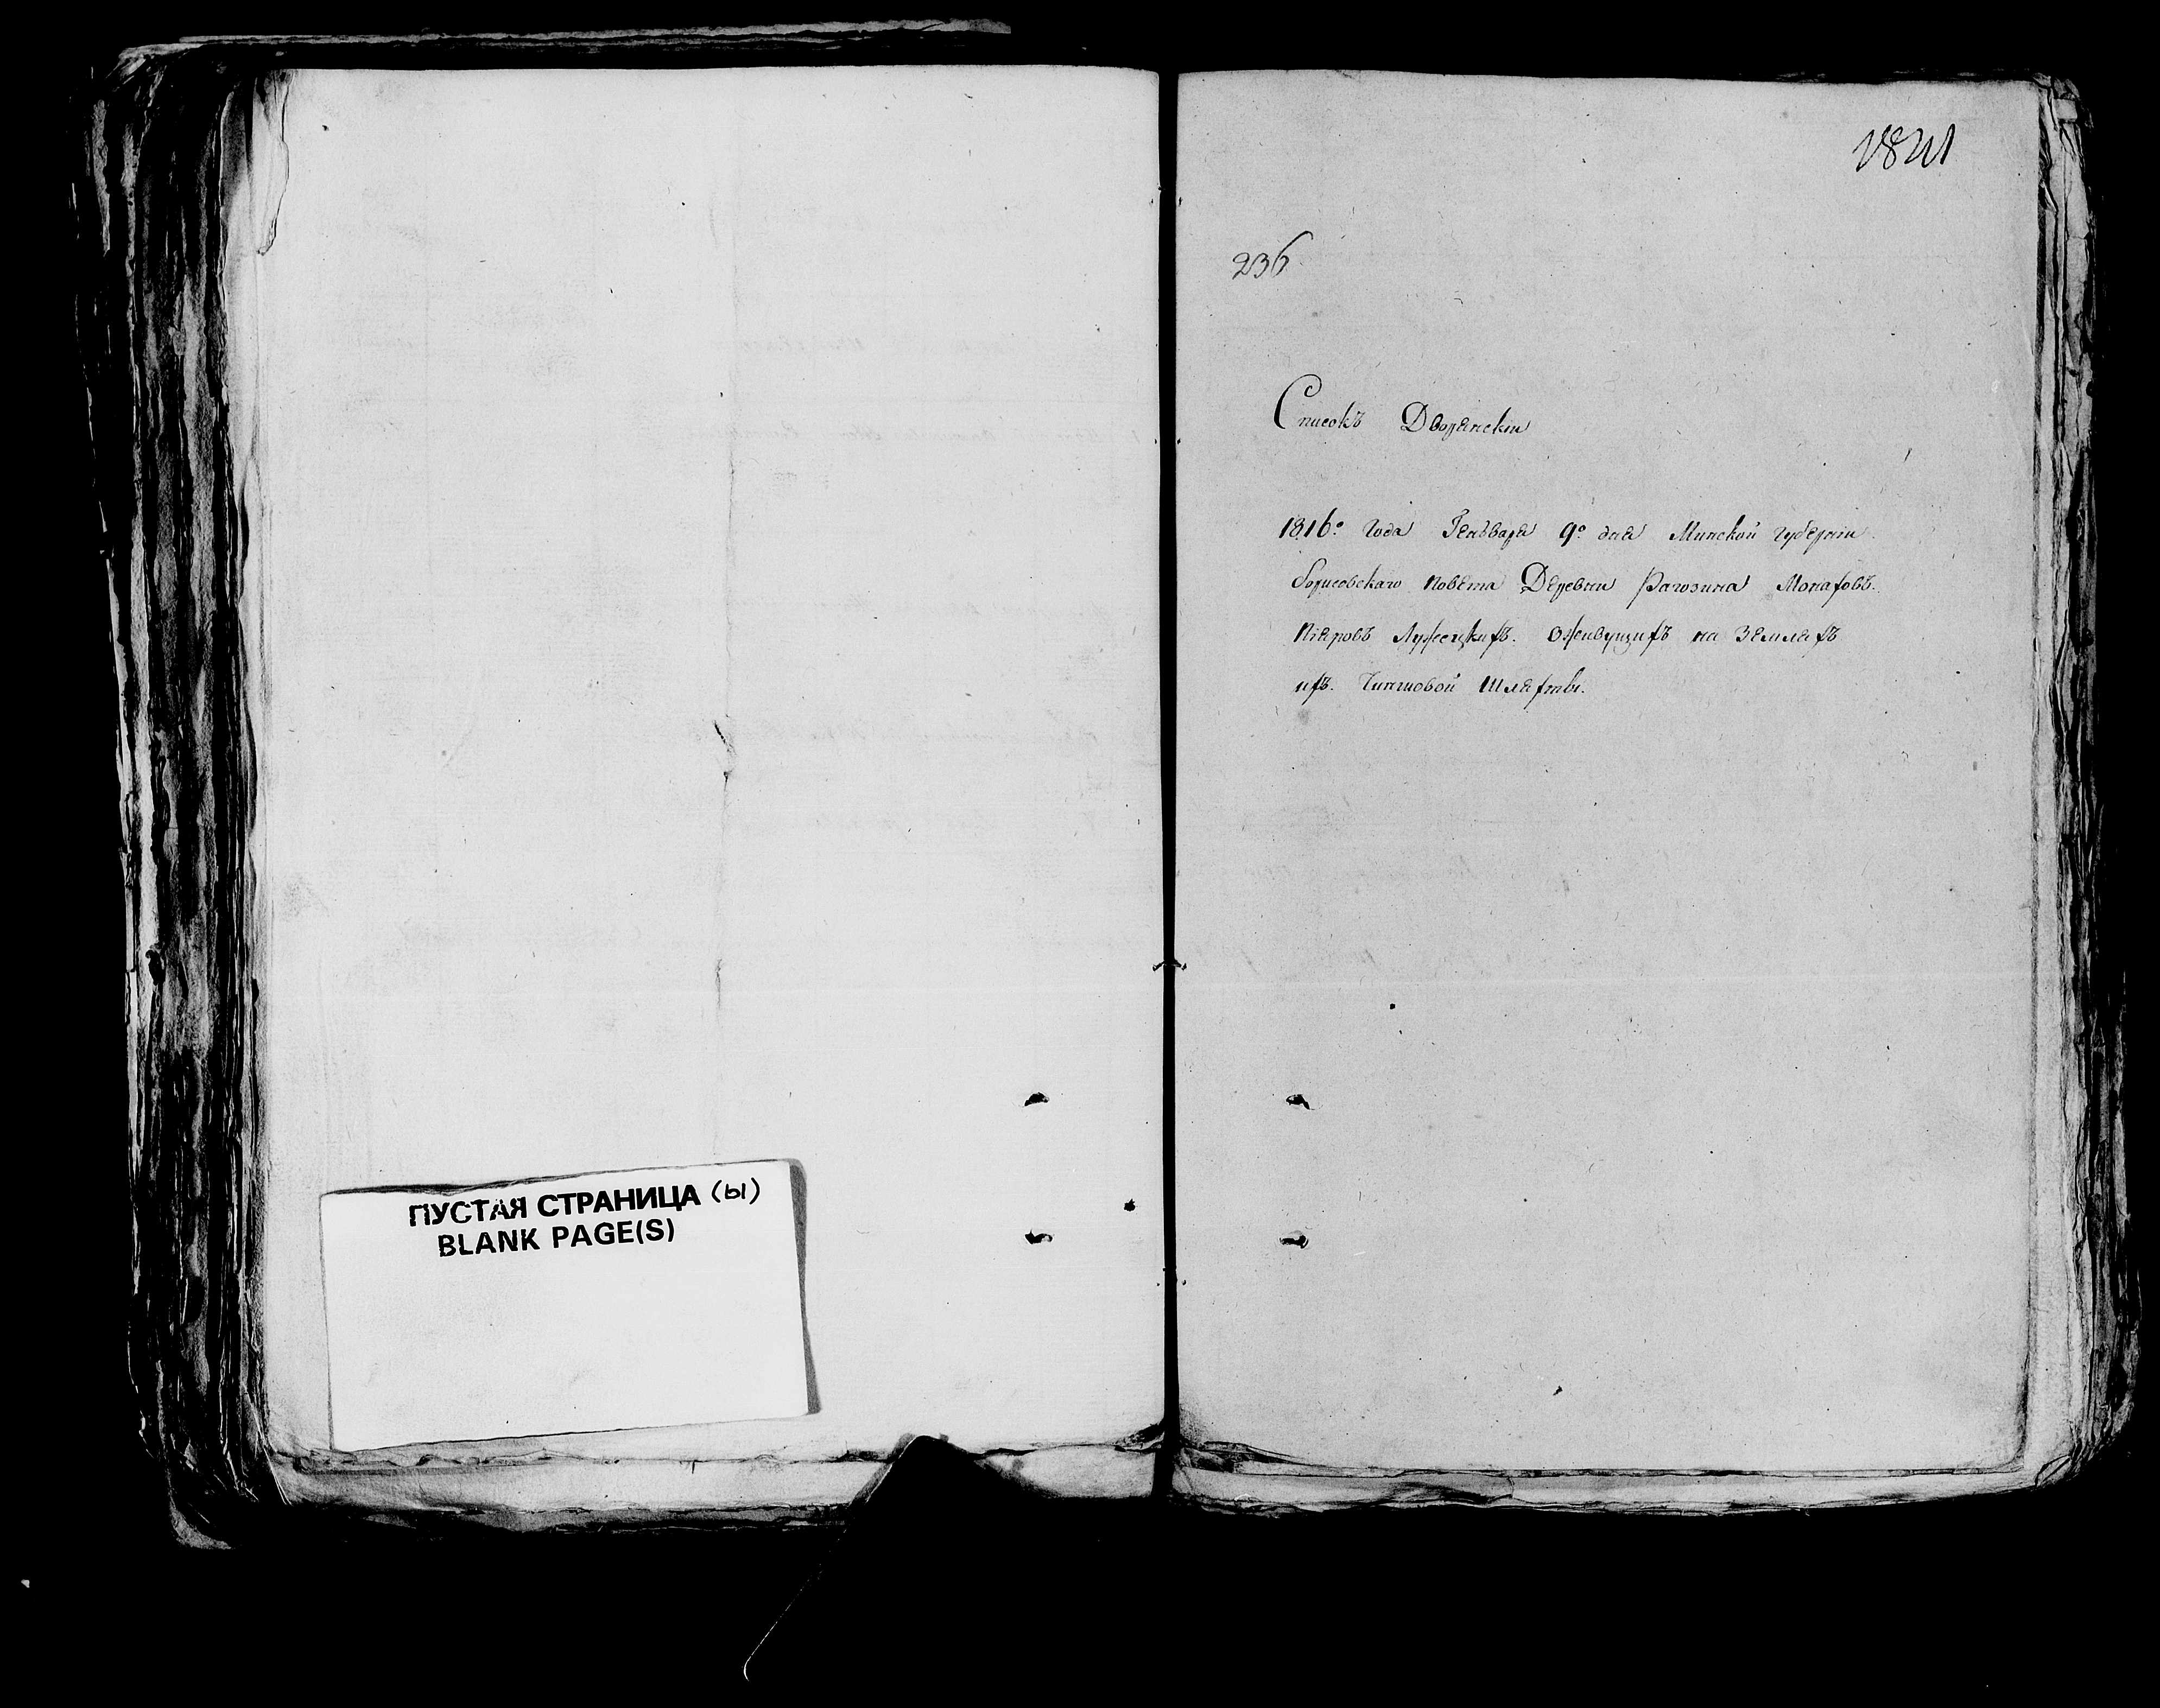 ПУСТАЯ СТРАНИЦА (ы)
BLANK PAGE(S)
236
Списокъ Дворянски
1816º года Генъваря 9º дня Минской губерніи
Борисовскаго повета Деревни Рагозина Монаховъ
Піяровъ Лужецкихъ. Оживущихъ на Земляхъ
ихъ. Чиншовой Шляхты.